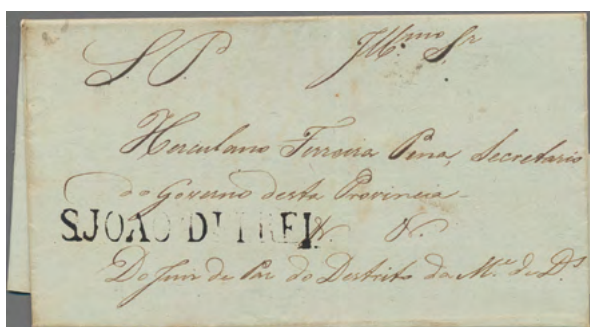 S. P. Illmo. Sr
Herculano Ferreira Pena, Secretario
do Governo desta Provincia
S.JOAO D'I REI & &.
Do Juiz de Paz do Destrito da M.e de D.s